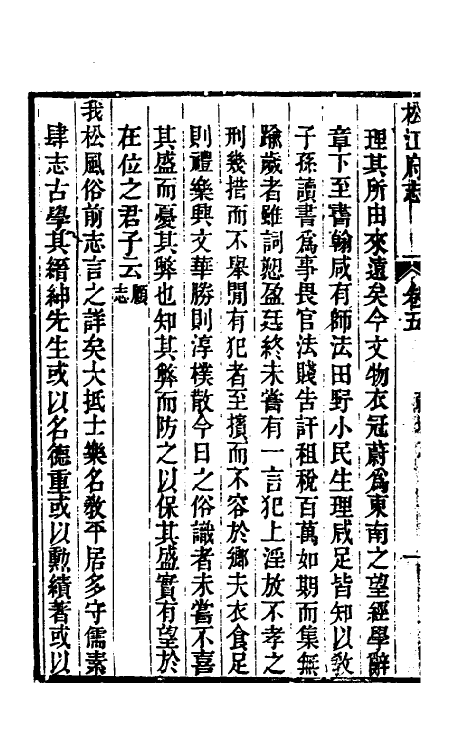 松江府志 卷五
理其所由來遠矣今文物衣冠蔚爲東南之望經學辭
章下至書翰咸有師法田野小民生理咸足皆知以敎
子孫讀書爲事畏官法賤告訐租稅百萬如期而集無
踰歲者雖詞愬盈廷終未嘗有一言犯上淫放不孝之
刑幾措而不舉閒有犯者至擯而不容於鄉夫衣食足
則禮樂興文華勝則淳樸散今日之俗識者未嘗不喜
其盛而憂其弊也知其弊而防之以保其盛實有望於
在位之君子云顧志
我松風俗前志言之詳矣大抵士樂名敎平居多守儒素
肆志古學其縉紳先生或以名德重或以勳績著或以